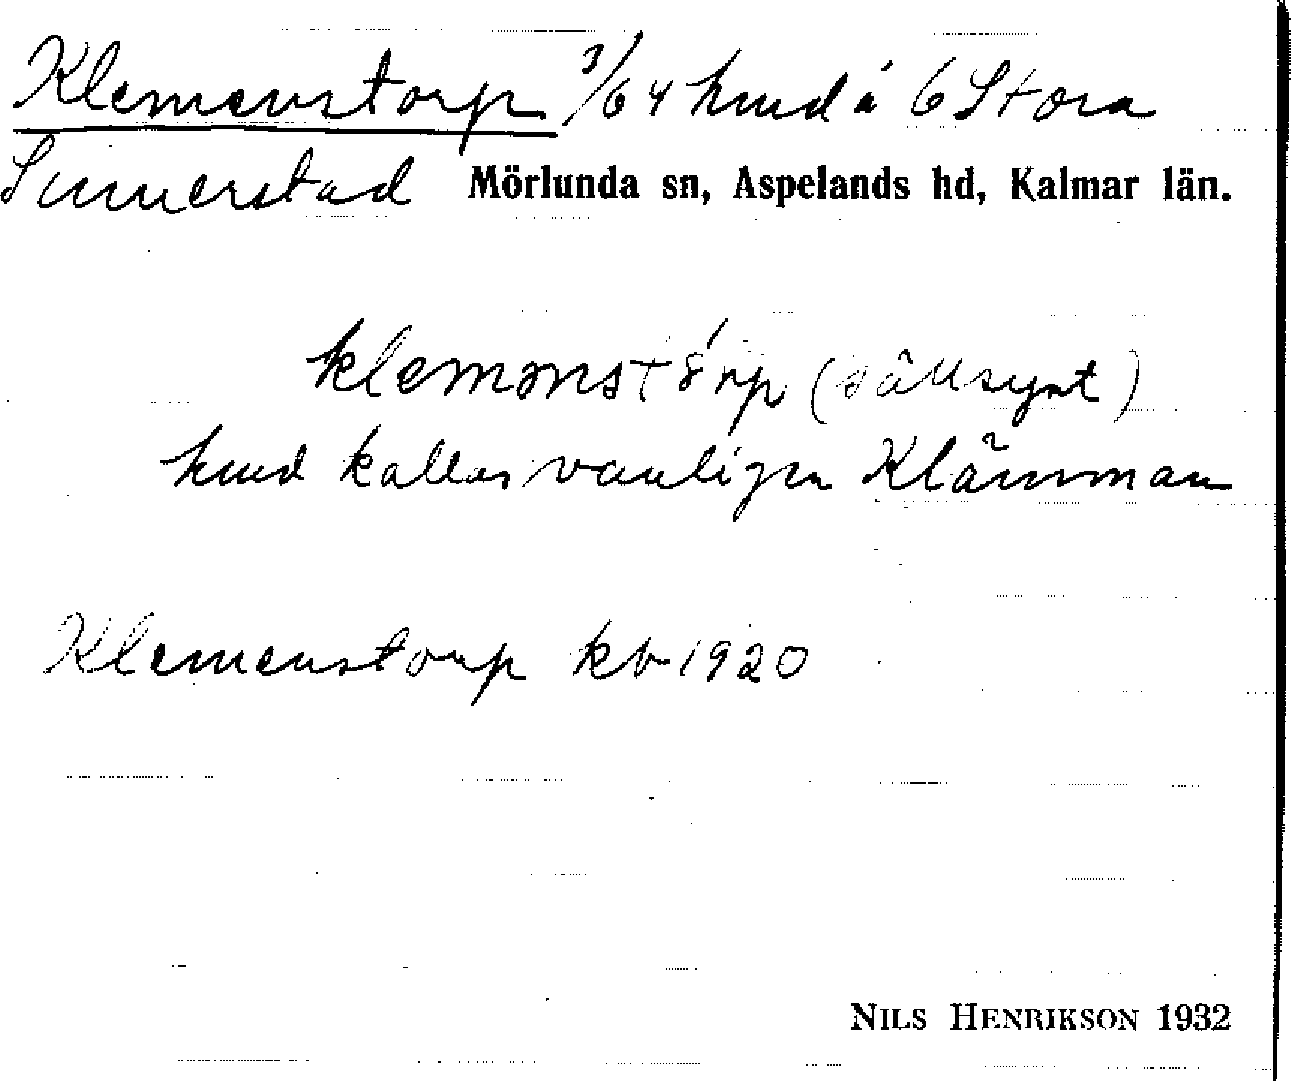 Klemenstorp 3/64 hmd å 6 Stora
Sinnerstad Mörlunda sn, Aspelands hd, Kalmar län.
klemmenstórp (sällsynt)
hmd kallas vanligen Klämman
Klemenstorp kb 1920
NILS HENRIKSON 1932